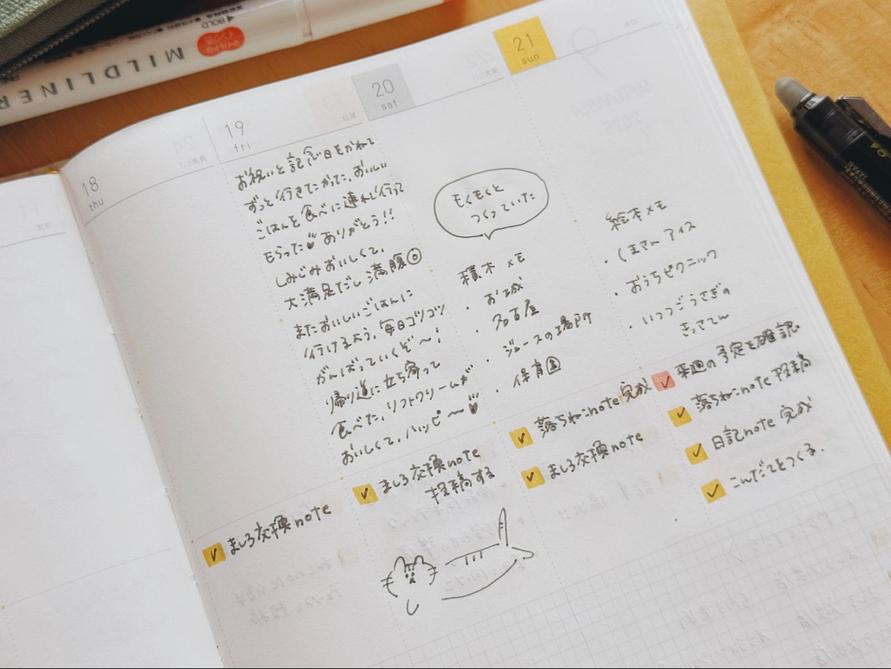 BOLD
MILDLINER
18
thu
19
fri
20
sat
21
sun
お祝いと記念日をかねて
ずっと行きたかった、おいしい
ごはんを食べに連れて行って
もらった ありがとう!!
しみじみおいしくて、
大満足だし満腹◎
またおいしいごはんに
行けるよう、毎日コツコツ
がんばっていくぞ〜!
帰り道に立ち寄って
食べた、ソフトクリームが
おいしくて、ハッピ〜
もくもくと
つくっていた
積木メモ
・お城
・名古屋
・ジュースの場所
・保育園
絵本メモ
・くまさん アイス
・おうちピクニック
・いつつごうさぎの
きっさてん
ましろ交換note
ましろ交換note
投稿する
落ちねこnote完成
ましろ交換note
来週の予定を確認
落ちねこnote投稿
日記note完成
こんだてをつくる.